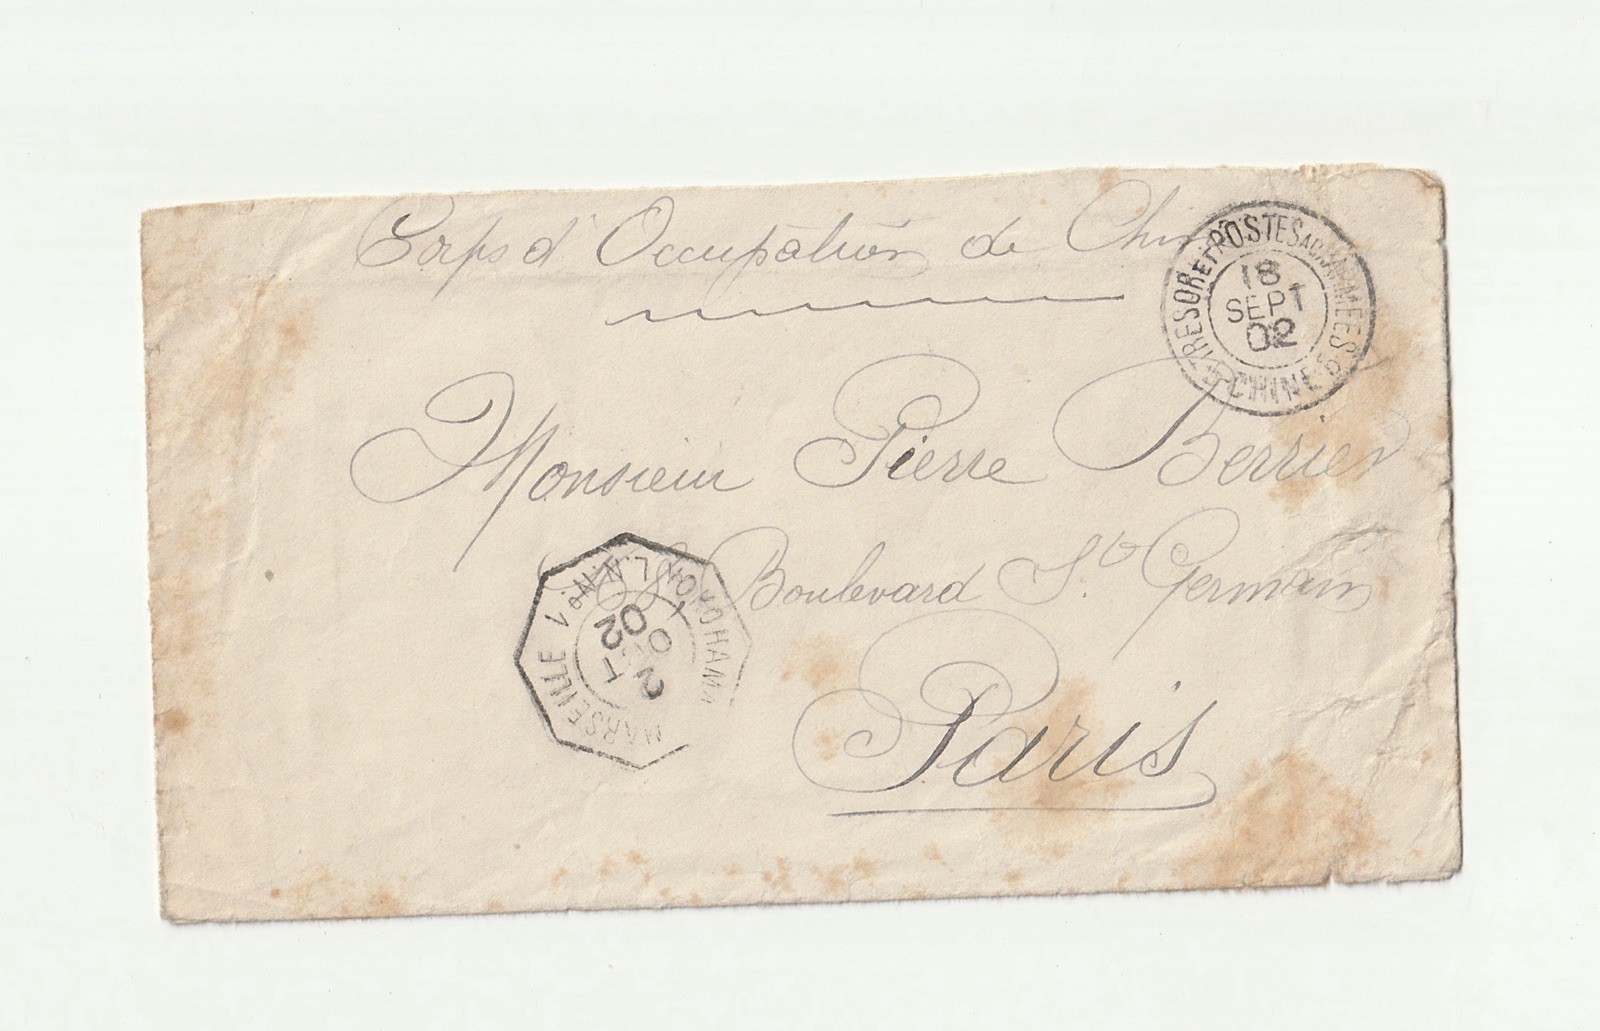 Corps d'Occupation de Chine
TRESOR ET POSTES AUX ARMEES
18
SEPT
02
CHINE
Monsieur Pierre Berrier
Boulevard St Germain
Paris
YOKOHAMA
MARSEILLE
L.N. No 1
2
OCT
02